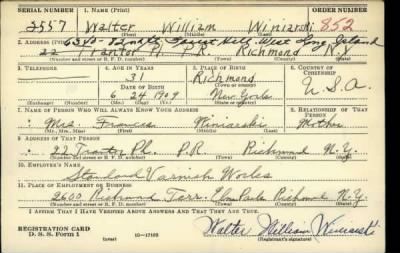 SERIAL NUMBER 1. NAME (Print) ORDER NUMBER
3557 Walter William Winiarski 852
2. ADDRESS (Print) 6340 - 82nd Pl Forest Hill West Long Island
22 Trantor Pl. P.R. Richmond N.Y
(Number and street or R. F. D. number) (Town) (County) (State)
3. TELEPHONE 4. AGE IN YEARS 5. PLACE OF BIRTH 6. COUNTRY OF CITIZENSHIP
31 Richmond
DATE OF BIRTH (Town or county) U.S.A.
6 24 1909 New York
(Exchange) (Number) (Mo.) (Day) (Yr.) (State or country)
7. NAME OF PERSON WHO WILL ALWAYS KNOW YOUR ADDRESS 8. RELATIONSHIP OF THAT PERSON
Mrs. Frances Winiarski Mother
(Mr., Mrs., Miss) (First) (Middle) (Last)
9. ADDRESS OF THAT PERSON
22 Trantor Pl. P.R. Richmond N.Y.
(Number and street or R. F. D. number) (Town) (County) (State)
10. EMPLOYER'S NAME
Standard Varnish Works
11. PLACE OF EMPLOYMENT OR BUSINESS
2600 Richmond Terr. Elm Park Richmond N.Y.
(Number and street or R. F. D. number) (Town) (County) (State)
I AFFIRM THAT I HAVE VERIFIED ABOVE ANSWERS AND THAT THEY ARE TRUE.
REGISTRATION CARD
D. S. S. Form 1 (over) 16—17105 Walter William Winiarski
(Registrant's signature)